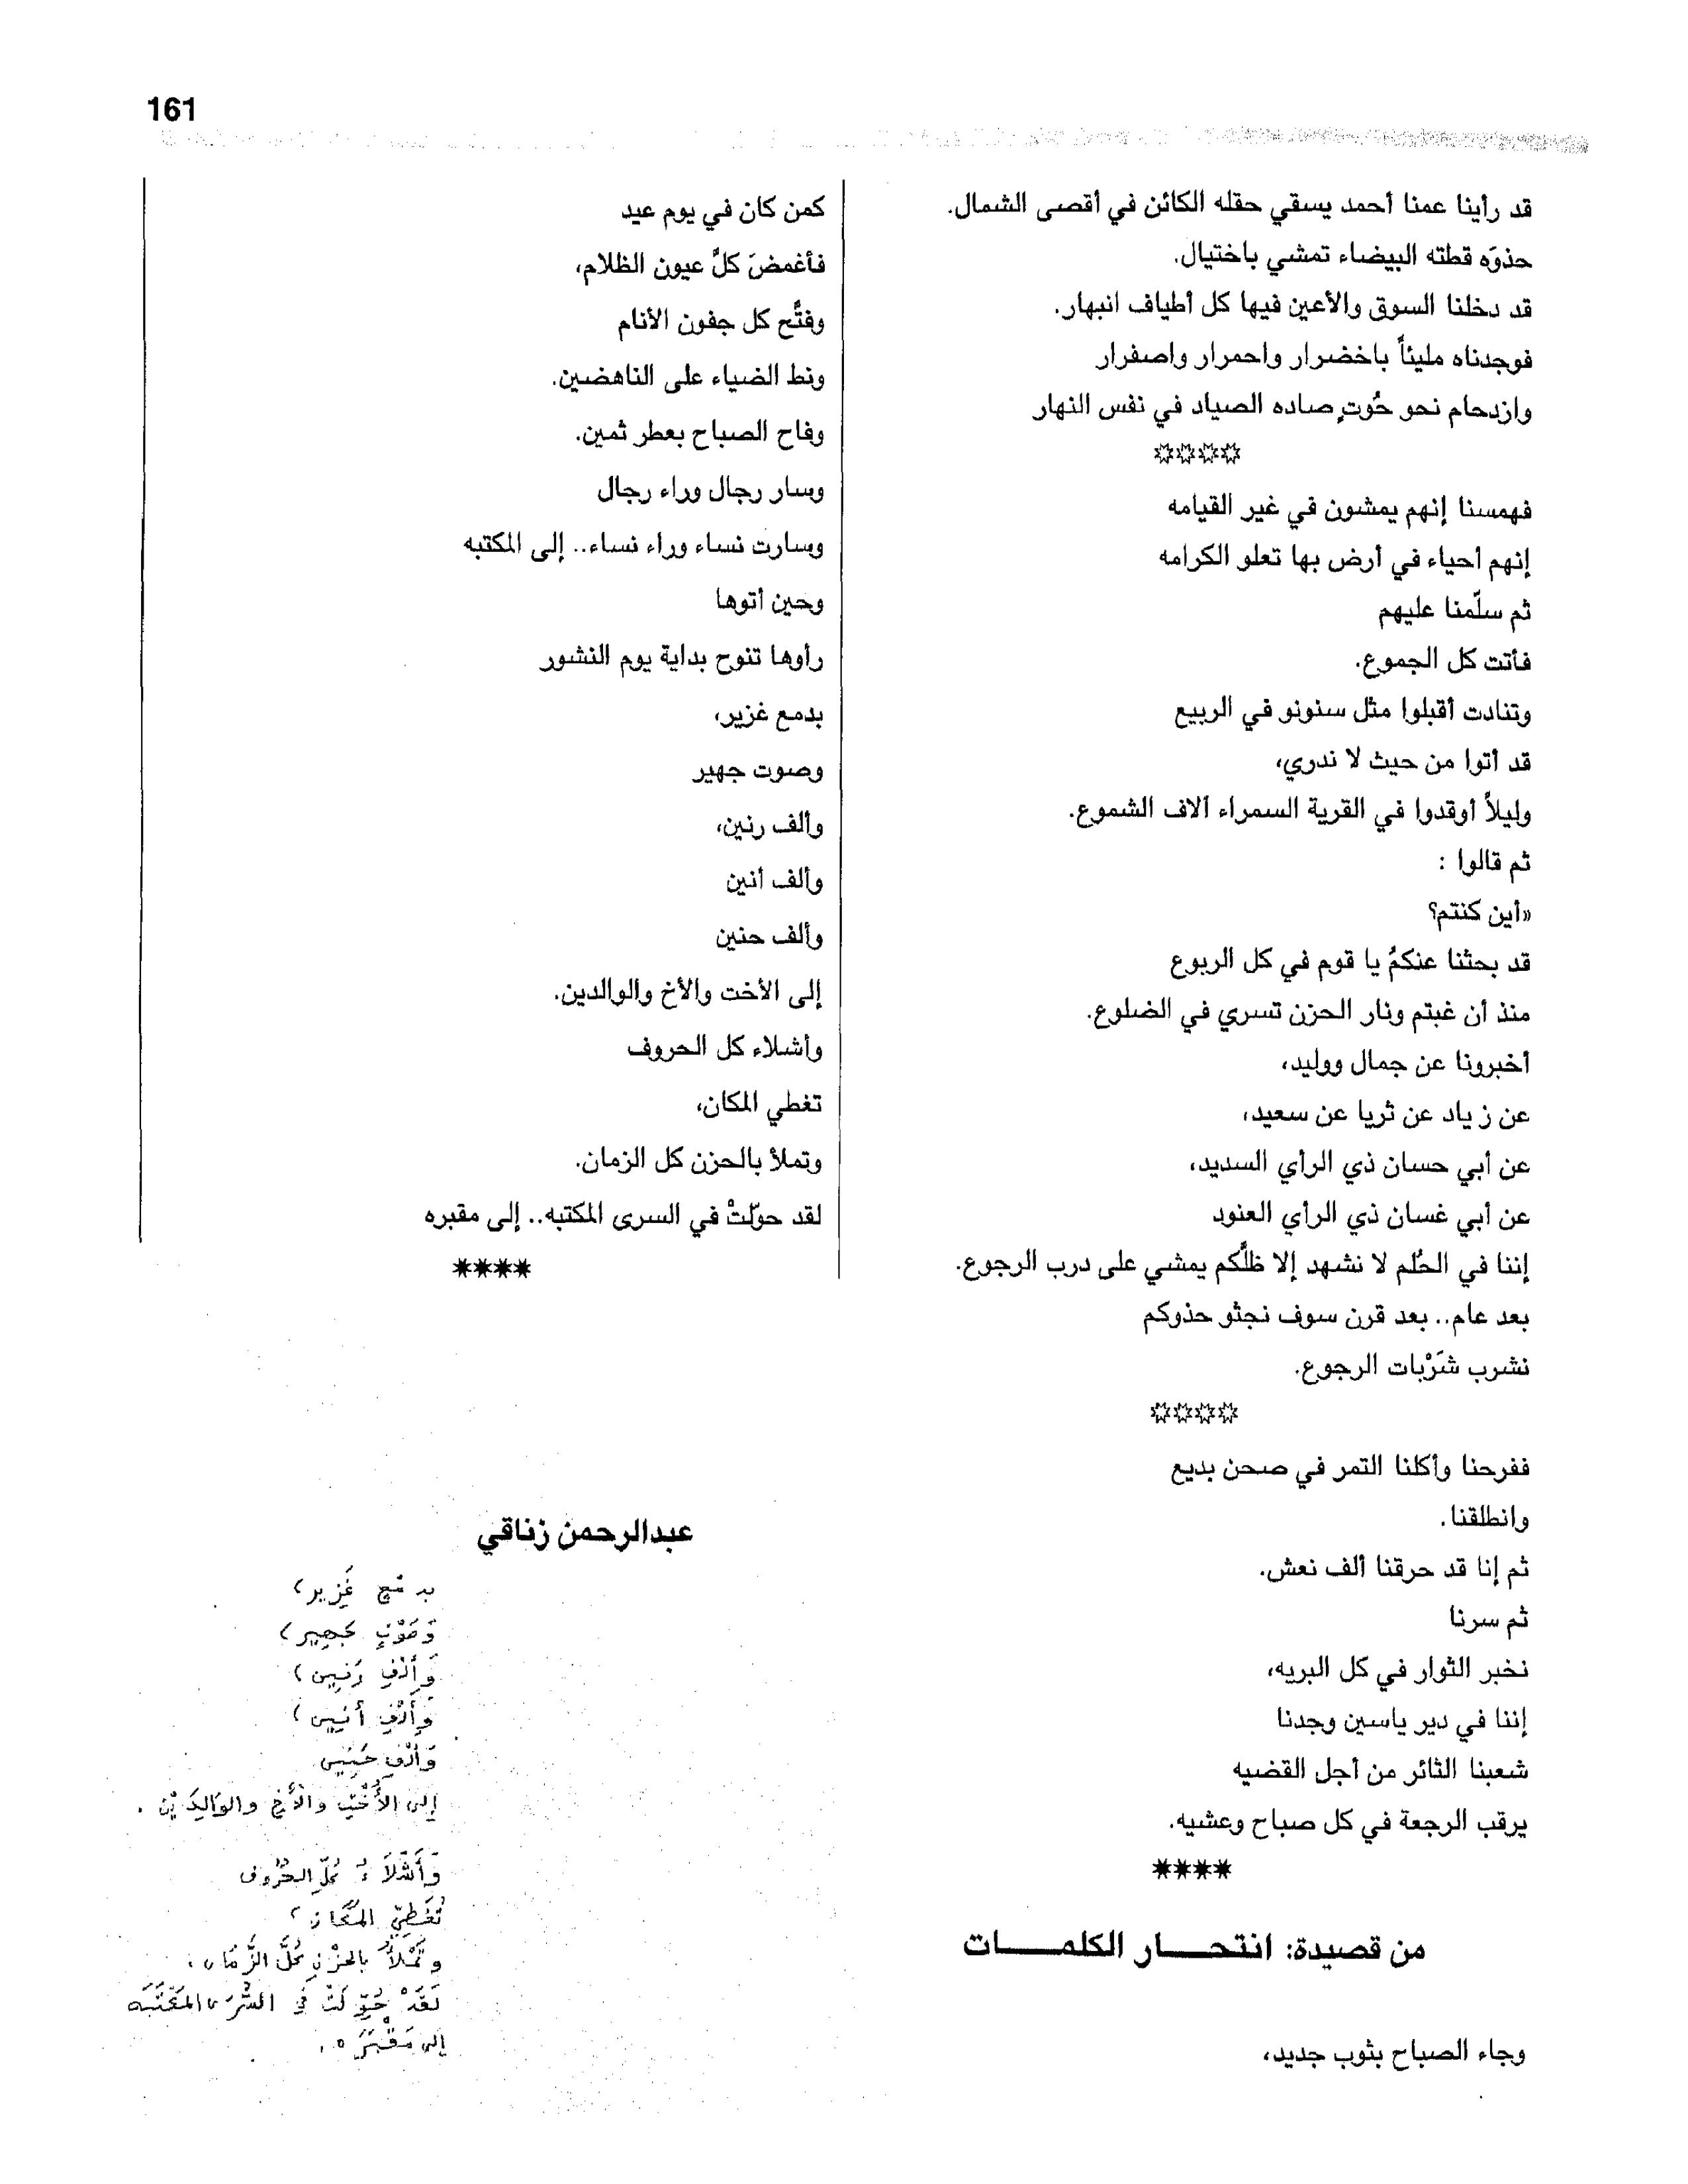 161
قد رأينا عمنا أحمد يسقي حقله الكائن في أقصى الشمال.
حذوَه قطته البيضاء تمشي باختيال.
قد دخلنا السوق والأعين فيها كل أطياف انبهار.
فوجدناه مليئاً باخضرار واحمرار واصفرار
وازدحام نحو حُوتٍ صاده الصياد في نفس النهار
****
فهمسنا إنهم يمشون في غير القيامه
إنهم أحياء في أرض بها تعلو الكرامه
ثم سلّمنا عليهم
فأتت كل الجموع.
وتنادت أقبلوا مثل سنونو في الربيع
قد أتوا من حيث لا ندري،
وليلاً أوقدوا في القرية السمراء آلاف الشموع.
ثم قالوا :
«أين كنتم؟
قد بحثنا عنكمُ يا قوم في كل الربوع
منذ أن غبتم ونار الحزن تسري في الضلوع.
أخبرونا عن جمال ووليد،
عن زياد عن ثريا عن سعيد،
عن أبي حسان ذي الرأي السديد،
عن أبي غسان ذي الرأي العنود
إننا في الحُلم لا نشهد إلا ظلَّكم يمشي على درب الرجوع.
بعد عام.. بعد قرن سوف نجثو حذوكم
نشرب شَرْبات الرجوع.
****
ففرحنا وأكلنا التمر في صحن بديع
وانطلقنا.
ثم إنا قد حرقنا ألف نعش.
ثم سرنا
نخبر الثوار في كل البريه،
إننا في دير ياسين وجدنا
شعبنا الثائر من أجل القضيه
يرقب الرجعة في كل صباح وعشيه.
****
من قصيدة: انتحـــار الكلمـــات
وجاء الصباح بثوب جديد،
كمن كان في يوم عيد
فأغمضَ كلَّ عيون الظلام،
وفتَّح كل جفون الأنام
ونط الضياء على الناهضين.
وفاح الصباح بعطر ثمين.
وسار رجال وراء رجال
وسارت نساء وراء نساء.. إلى المكتبه
وحين أتوها
رأوها تنوح بداية يوم النشور
بدمع غزير،
وصوت جهير
وألف رنين،
وألف أنين
وألف حنين
إلى الأخت والأخ والوالدين.
وأشلاء كل الحروف
تغطي المكان،
وتملأ بالحزن كل الزمان.
لقد حوّلتْ في السرى المكتبه.. إلى مقبره
****
عبدالرحمن زناقي
بدمْعٍ غَزير،
وَصَوْتٍ جَهِير،
وَأَلْفِ رَنِين،
وَأَلْفِ أَنِين،
وَأَلْفِ حَنِين
إلى الأُخْتِ والأَخِ والوَالِدَيْن.
وَأَشْلاَءُ كُلِّ الحُرُوف
تُغَطِّي المَكَان،
وتَمْلأُ بالحُزْنِ كُلَّ الزَّمَان.
لَقَدْ حُوِّلَتْ في السُّرَى المَكْتَبَه
إلى مَقْبَرَه.